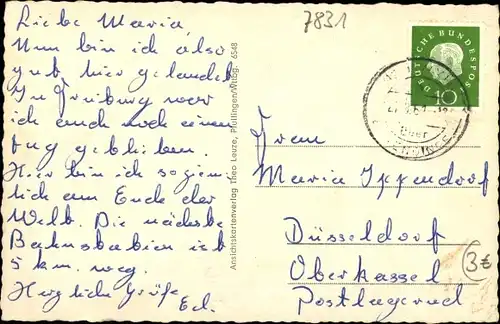 Liebe Maria,
Nun bin ich also
gut hier gelandet
In Freiburg war
ich auch noch einen
Tag geblieben.
Hier bin ich so ziem-
lich am Ende der
Welt. Die nächste
Bahnstation ist
5 km. weg.
Herzliche Grüße
Ed.
Ansichtskartenverlag Theo Leuze, Pfullingen/Wttbg. 6548
7831
DEUTSCHE BUNDESPOST
10
über
Frau
Maria Ippendorf
Düsseldorf
Oberkassel
Postlagernd
3€